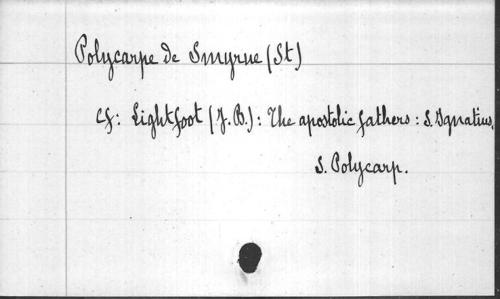 Polycarpe de Smyrne (St)
cf: Lightfoot (J.B.): The apostolic fathers: S. Ignatius,
S. Polycarp.